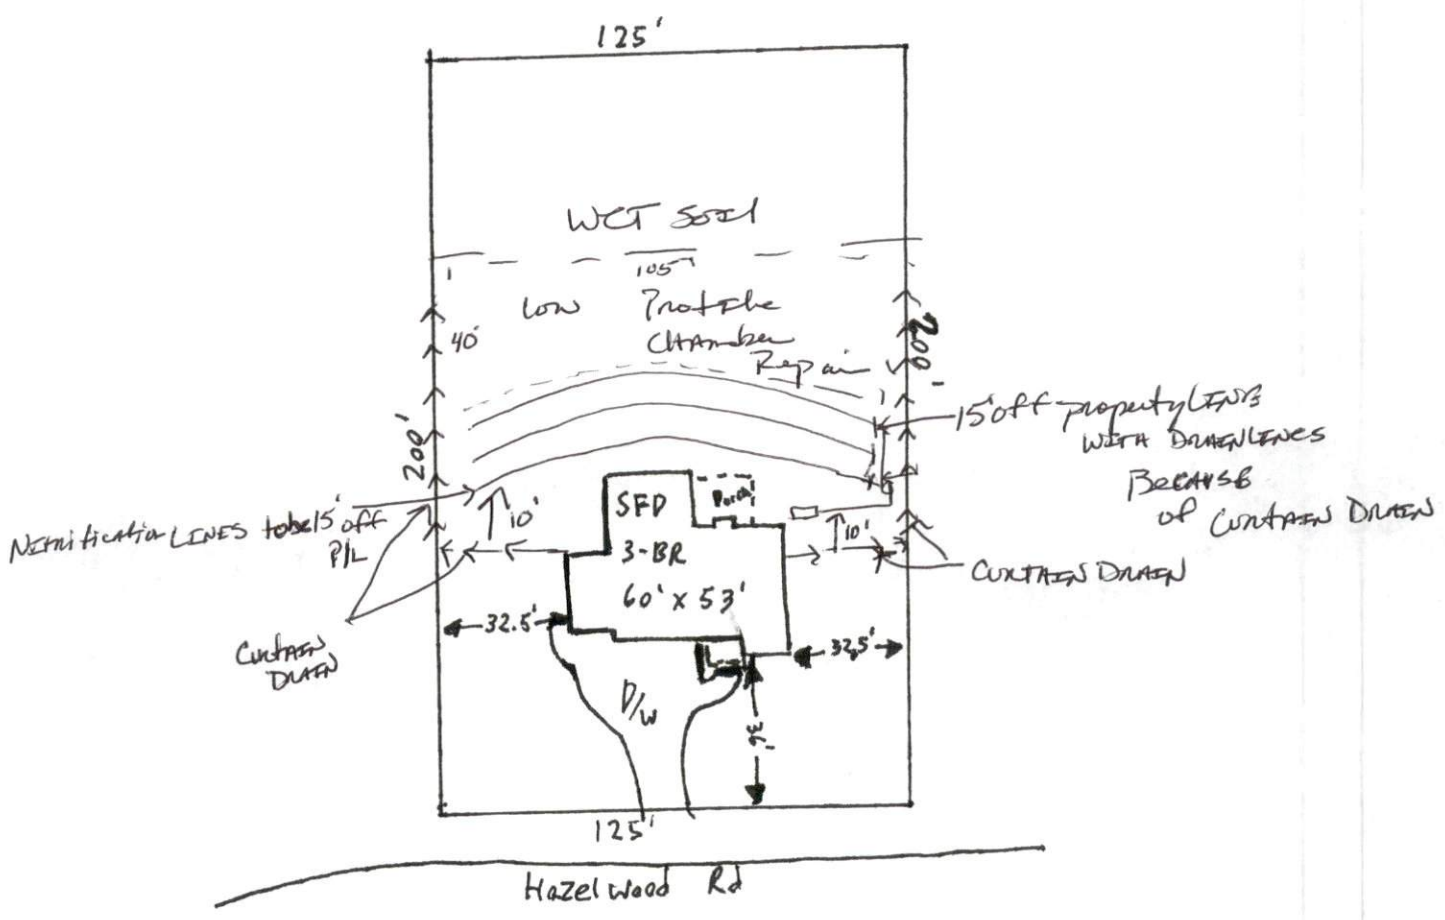 125'
WET SOIL
105'
Low Profile
Chamber
Repair
40'
200'
200'
15' off property LINE
WITH DRAINLINES
BECAUSE
of CURTAIN DRAIN
Nitrification LINES to be 15' off
P/L
10'
SFD
Porch
3-BR
60' x 53'
10'
CURTAIN DRAIN
32.5'
32.5'
CURTAIN
DRAIN
D/W
36'
125'
Hazelwood Rd